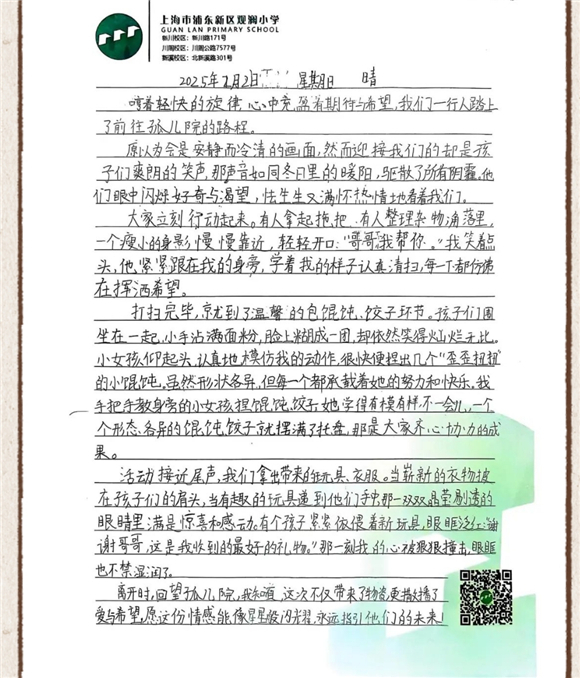 上海市浦东新区观澜小学
GUAN LAN PRIMARY SCHOOL
新川校区：新川路171号
川周校区：川周公路7577号
新溪校区：北新溪路301号
2025年1月2日 星期日 晴
唱着轻快的旋律，心中充盈着期待与希望，我们一行人踏上
了前往孤儿院的路程。
原以为会是安静而冷清的画面，然而迎接我们的却是孩
子们爽朗的笑声，那声音如同冬日里的暖阳，驱散了所有阴霾。他
们眼中闪烁好奇与渴望，怯生生又满怀热情地看着我们。
大家立刻行动起来。有人拿起拖把，有人整理杂物，角落里，
一个瘦小的身影慢慢靠近，轻轻开口："哥哥，我帮你。"我笑着点
头，他紧紧跟在我的身旁，学着我的样子认真清扫，每一下都仿佛
在挥洒希望。
打扫完毕，就到了温馨的包馄饨、饺子环节。孩子们围
坐在一起，小手沾满面粉，脸上糊成一团，却依然笑得灿烂无比。
小女孩仰起头，认真地模仿我的动作，很快便捏出几个"歪歪扭扭"
的小馄饨。虽然形状各异，但每一个都承载着她的努力和快乐。我
手把手教身旁的小女孩捏馄饨、饺子，她学得有模有样，不一会儿，一个
个形态各异的馄饨、饺子就摆满了托盘，那是大家齐心协力的成
果。
活动接近尾声，我们拿出带来的玩具、衣服。当崭新的衣物披
在孩子们的肩头，当有趣的玩具递到他们手中，那一双双晶莹剔透的
眼睛里满是惊喜和感动。有个孩子紧紧依偎着新玩具，眼眶泛红："谢
谢哥哥，这是我收到的最好的礼物。"那一刻我的心被狠狠撞击，眼眶
也不禁湿润了。
离开时，回望孤儿院，我知道，这次不仅带来了物资，更播撒了
爱与希望，愿这份情感能像星星般闪耀，永远指引他们的未来！